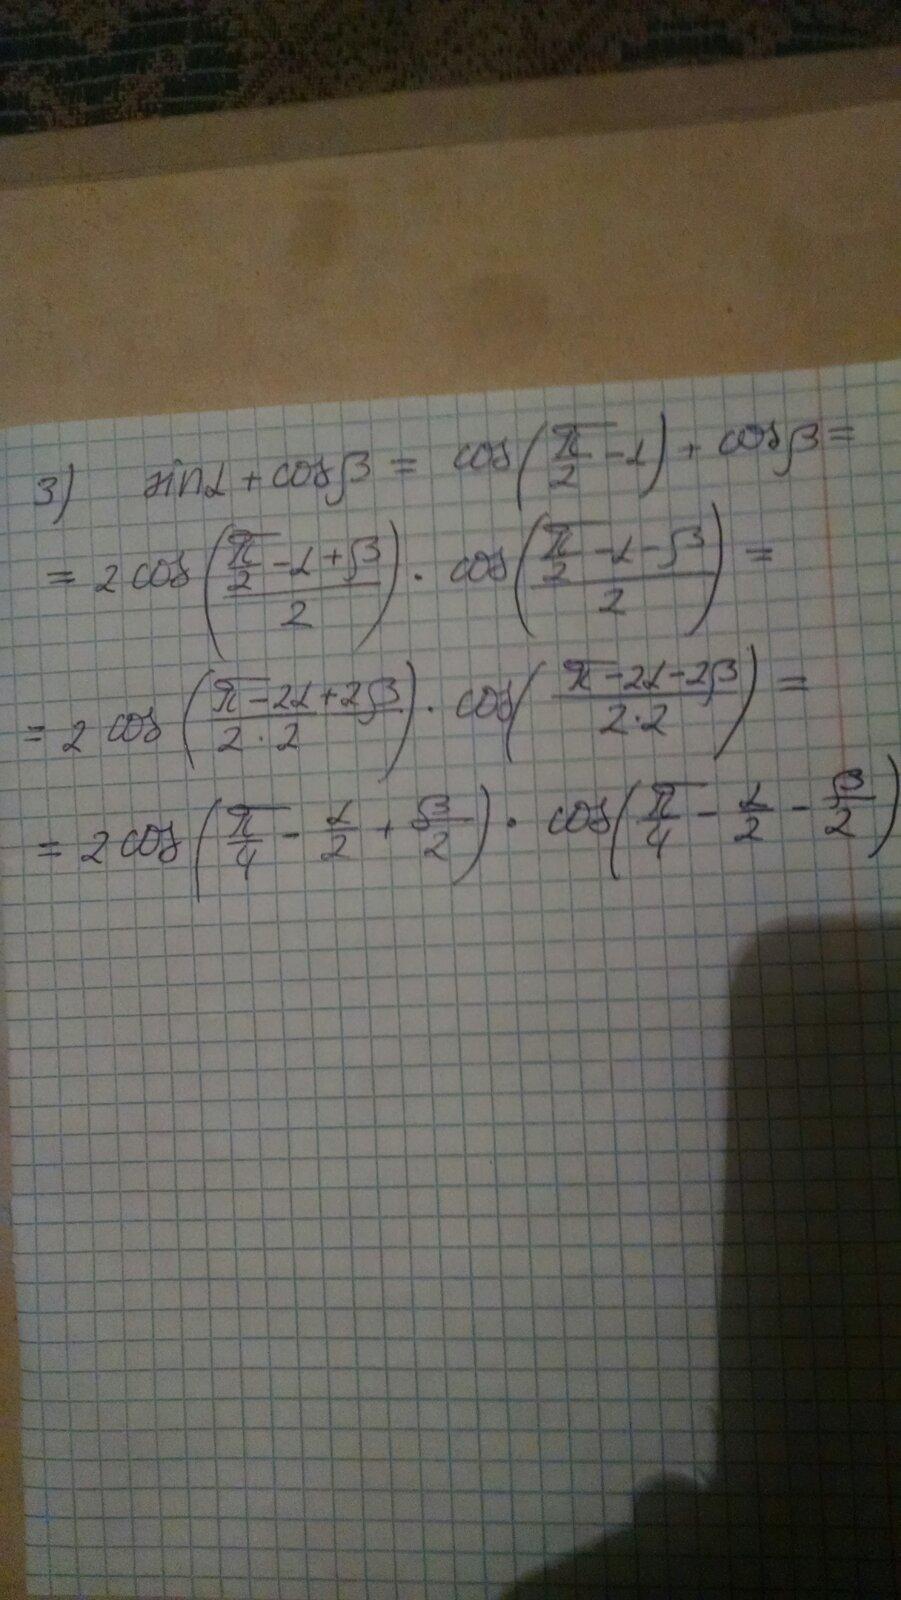 3) sinα + cosβ = cos(π/2 - α) + cosβ =
= 2 cos((π/2 - α + β)/2) · cos((π/2 - α - β)/2) =
= 2 cos((π - 2α + 2β)/(2·2)) · cos((π - 2α - 2β)/(2·2)) =
= 2 cos(π/4 - α/2 + β/2) · cos(π/4 - α/2 - β/2)